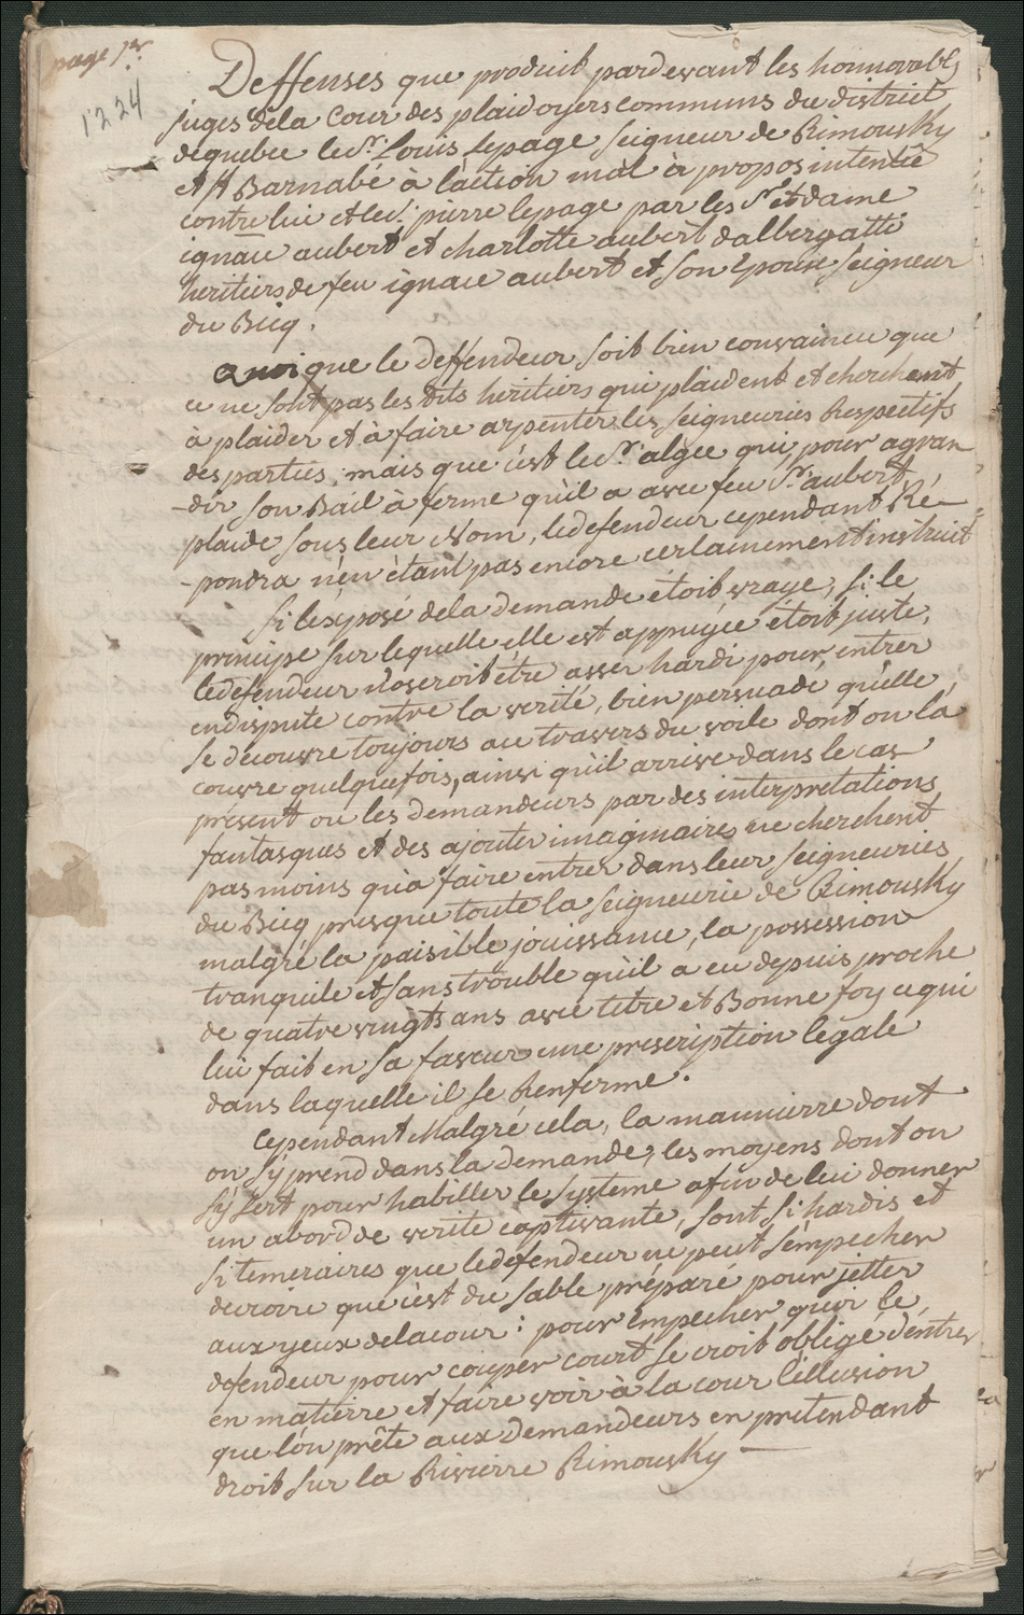 page 1er
1224
Deffenses que produit pardevant les honnorables
juges dela Cour des plaidoyers communs du district
dequebec le Sr. Louis Lepage Seigneur de Rimousky
et St Barnabé à l'action mal à propos intentée
contre lui et le Sr. pierre lepage par les Sr et dame
ignace aubert et charlotte aubert dalbergatti
heritiers de feu ignace aubert et son Epouse seigneur
du Bicq.
Quoique le deffendeur soit bien convaincu que
ce ne sont pas les dits heritiers qui plaident et cherchent
à plaider et à faire arpenter les Seigneuries Respectifs
des parties, mais que c'est le Sr. algee qui, pour agran
-dir son Bail à ferme qu'il a avec feu Sr. aubert,
plaide sous leur Nom, le defendeur cependant Ré-
-pondra n'en étant pas encore certainement instruit
Si lexposé dela demande étoit vraye, si le
principe sur lequelle elle est appuyée étoit juste,
ledefendeur n'oseroit etre asser hardi pour entrer
endispute contre la verité, bien persuadé qu'elle
se decouvre toujours au travers du voile dont on la
couvre quelquefois, ainsi qu'il arrive dans le cas
présent ou les demandeurs par des interpretations
fantasques et des ajouter imaginaires ne cherchent
pas moins qu'a faire entrer dans leur seigneuries
du Bicq presque toute la seigneurie de Rimousky
malgré la paisible jouissance, la possession
tranquile et sans trouble qu'il a eu depuis proche
de quatre vingts ans avec titre et Bonne foy ce qui
lui fait en sa faveur une prescription légale
dans laquelle il se Renferme.
Cependant Malgré cela, la mannierre dont
on s'y prend dans la demande, les moyens dont on
s'y sert pour habiller le systeme afin de lui donner
un abord de verité captivante, sont si hardis et
si temeraires que ledefendeur ne peut s'empecher
decroire que c'est du sable préparé pour jetter
aux yeux delacour : pour Empecher quoi le
defendeur pour couper court se croit obligé d'entrer
en matierre et faire voir à la cour l'illusion
que l'on prête aux demandeurs en pretendant
droit sur la Rivierre Rimousky